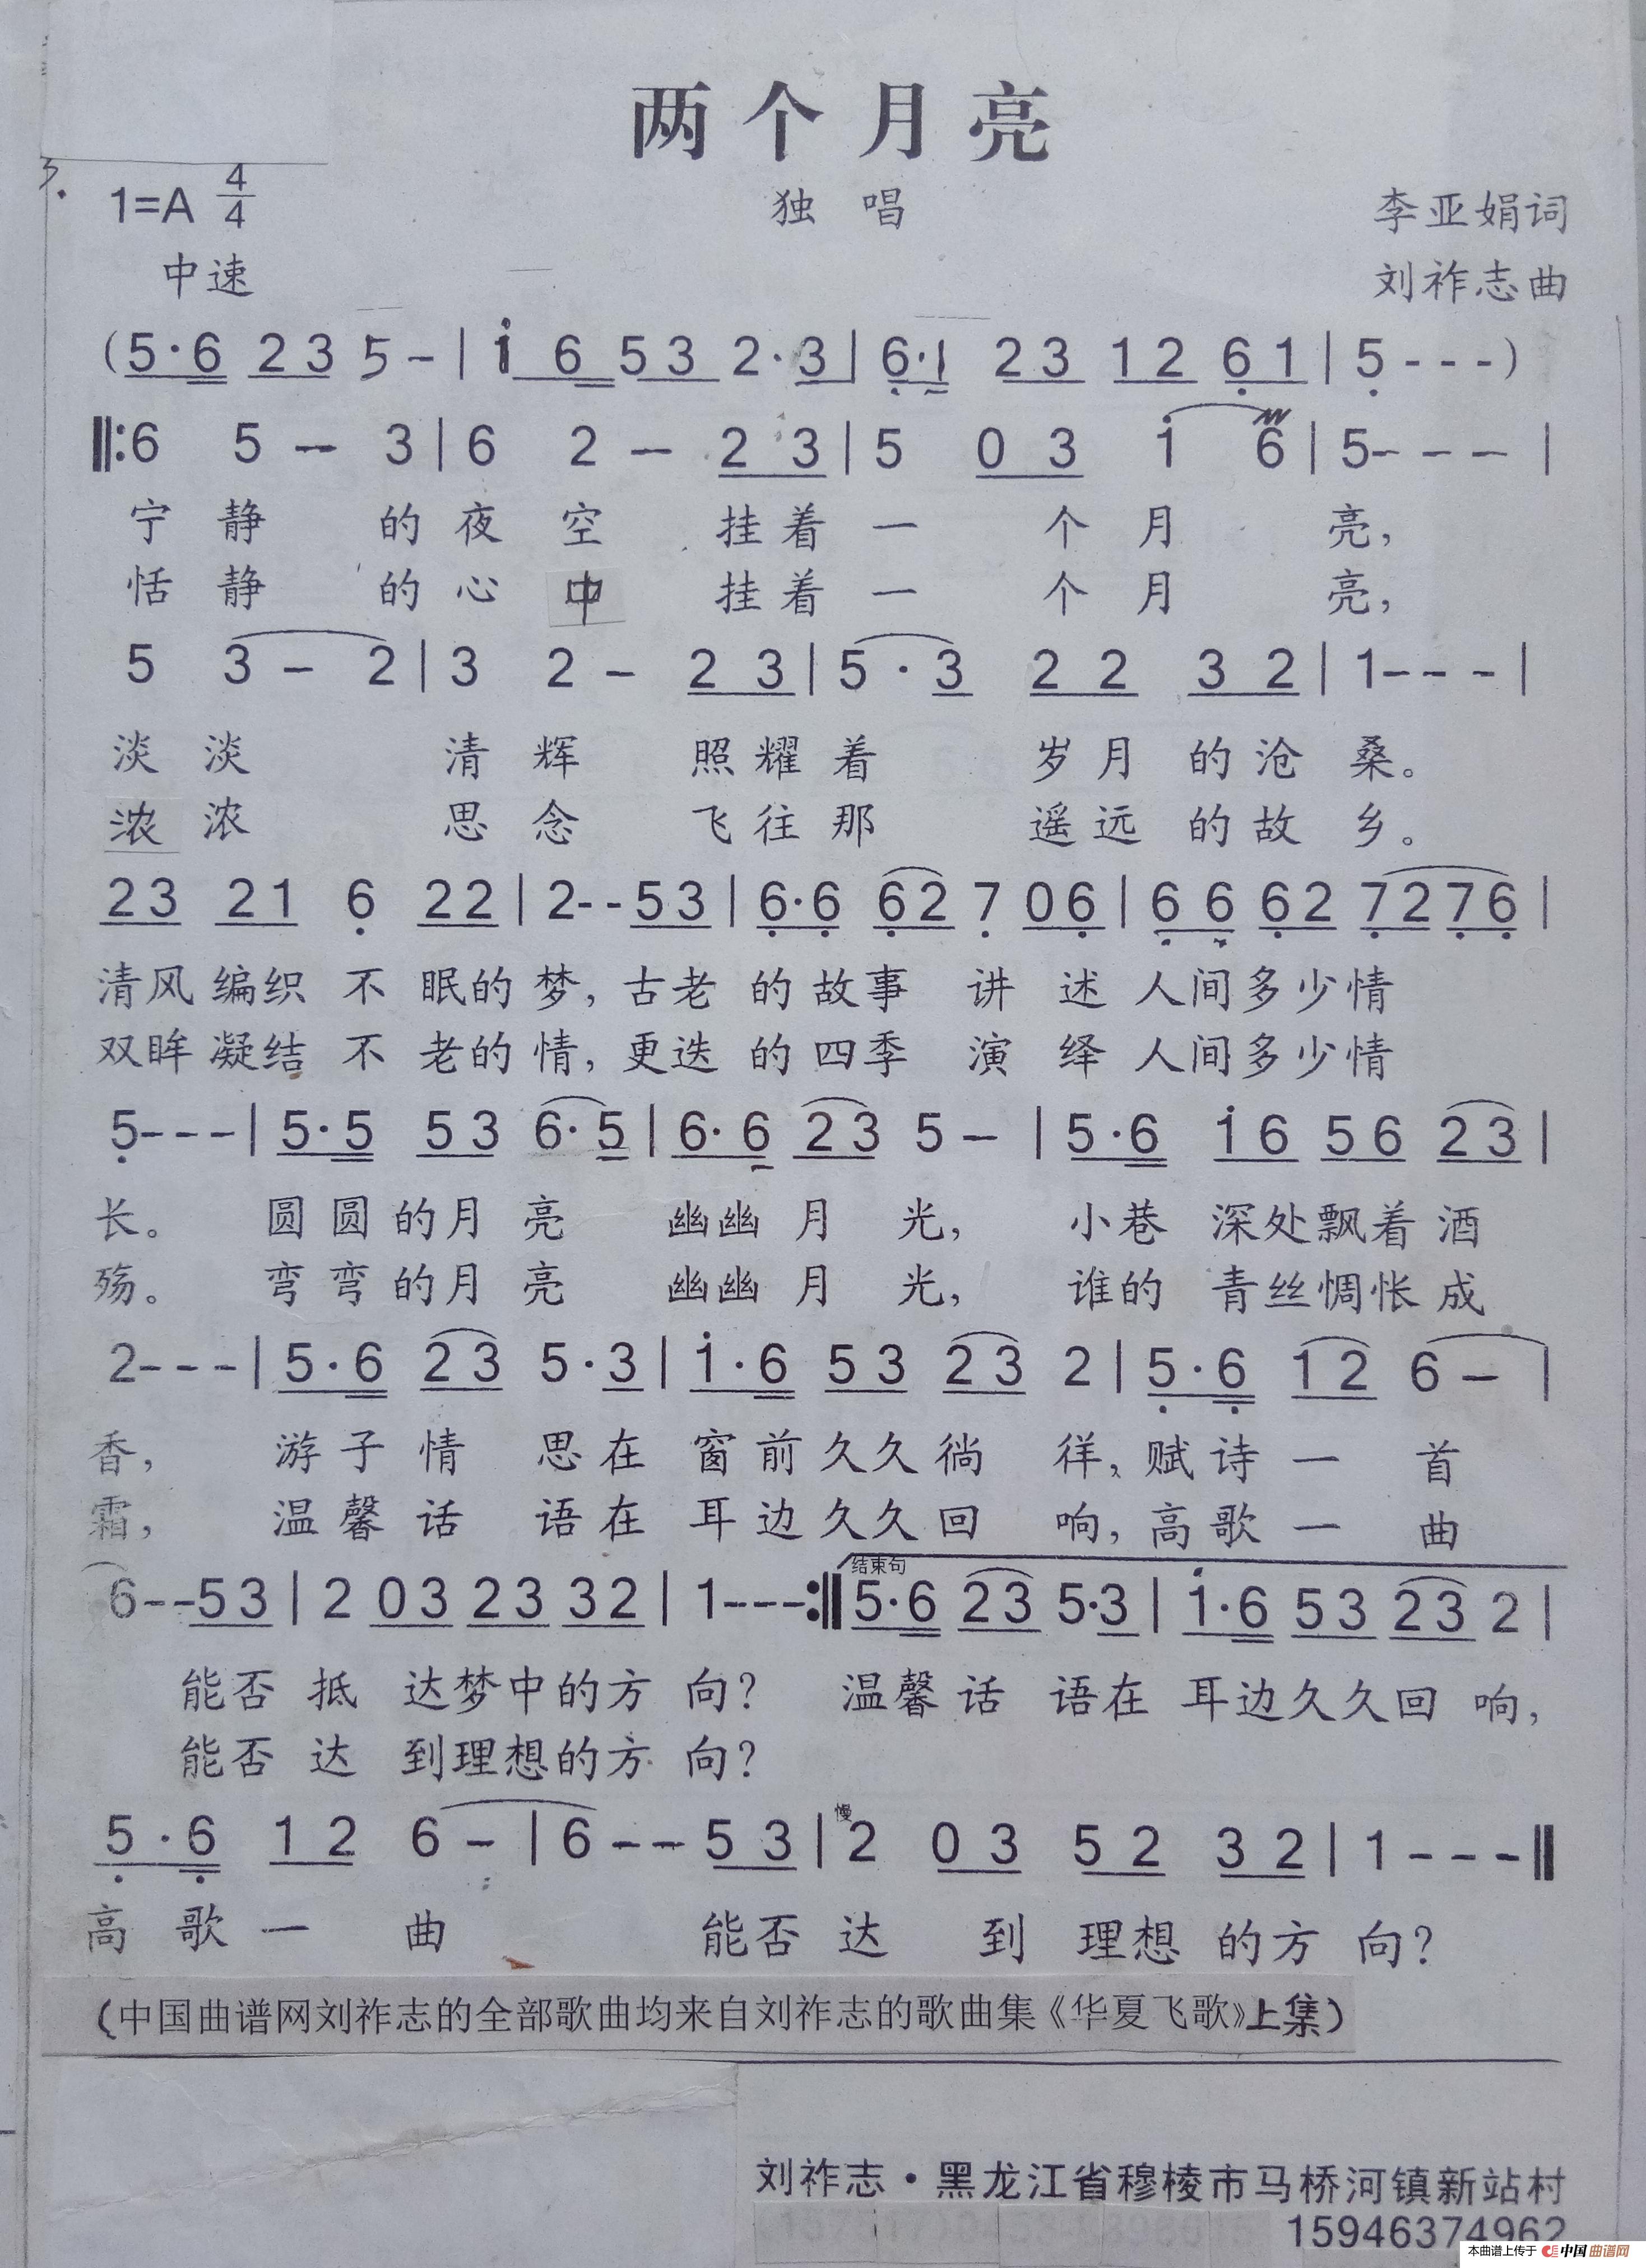 两个月亮
1=A 4/4
独 唱
李亚娟词
中速
刘祚志曲
(5·6 23 5 - | i 6 53 2·3 | 6·1 23 12 61 | 5 - - - )
‖:6 5 - 3 | 6 2 - 2 3 | 5 0 3 i 6 | 5 - - - |
宁 静 的 夜 空 挂 着 一 个 月 亮,
恬 静 的 心 中 挂 着 一 个 月 亮,
5 3 - 2 | 3 2 - 2 3 | 5 · 3 2 2 3 2 | 1 - - - |
淡 淡 清 辉 照 耀 着 岁 月 的 沧 桑。
浓 浓 思 念 飞 往 那 遥 远 的 故 乡。
23 21 6 22 | 2 - - 53 | 6·6 62 7 06 | 6 6 62 7276 |
清风 编织 不 眠的 梦, 古老 的 故事 讲 述 人间多少情
双眸 凝结 不 老的 情, 更迭 的 四季 演 绎 人间多少情
5 - - - | 5·5 53 6·5 | 6·6 23 5 - | 5·6 i6 56 23 |
长。 圆 圆 的月 亮 幽幽 月 光, 小巷 深处飘着 酒
殇。 弯 弯 的月 亮 幽幽 月 光, 谁的 青丝惆怅 成
2 - - - | 5·6 23 5·3 | i·6 53 23 2 | 5·6 12 6 - |
香, 游 子 情 思 在 窗 前 久久 徜 徉, 赋 诗 一 首
霜, 温 馨 话 语 在 耳 边 久久 回 响, 高 歌 一 曲
结束句
6 - - 53 | 2 03 23 32 | 1 - - - :‖ 5·6 23 5·3 | i·6 53 23 2 |
能否 抵 达梦中的方 向? 温馨 话 语在 耳边久久回 响,
能否 达 到理想的方 向?
慢
5·6 12 6 - | 6 - - 53 | 2 03 52 32 | 1 - - - ‖
高 歌 一 曲 能否 达 到 理想 的方 向?
(中国曲谱网刘祚志的全部歌曲均来自刘祚志的歌曲集《华夏飞歌》上集)
刘祚志·黑龙江省穆棱市马桥河镇新站村
15946374962
本曲谱上传于 中国曲谱网